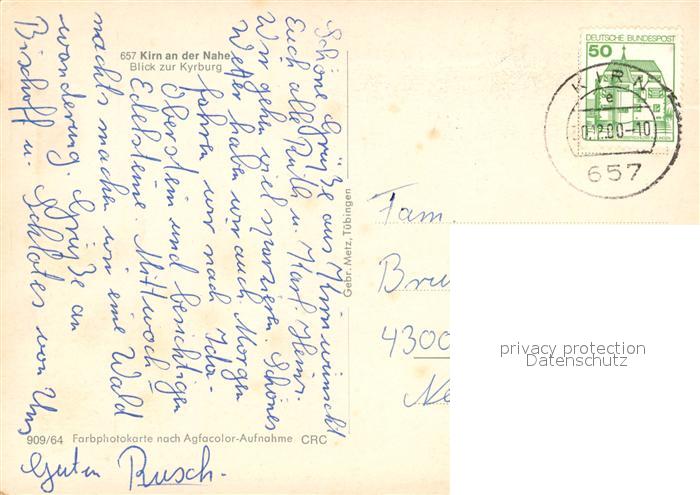 657 Kirn an der Nahe
Blick zur Kyrburg
Schöne Grüße aus Kirn wünscht
Euch alle Ruth u. Karl. Heinz.
Wir gehen viel spazieren. Schönes
Wetter haben wir auch. Morgen
fahren wir nach Ida-
Oberstein und besichtigen
Edelsteine. Mittwoch
nachts machen wir eine Wald
wanderung. Grüße an
Bischoff u. Schlotes von Uns
Guten Rusch.
909/64 Farbphotokarte nach Agfacolor-Aufnahme CRC
Gebr. Metz, Tübingen
DEUTSCHE BUNDESPOST
50
KIRN
e
-10
657
Fam.
4300
privacy protection
Datenschutz